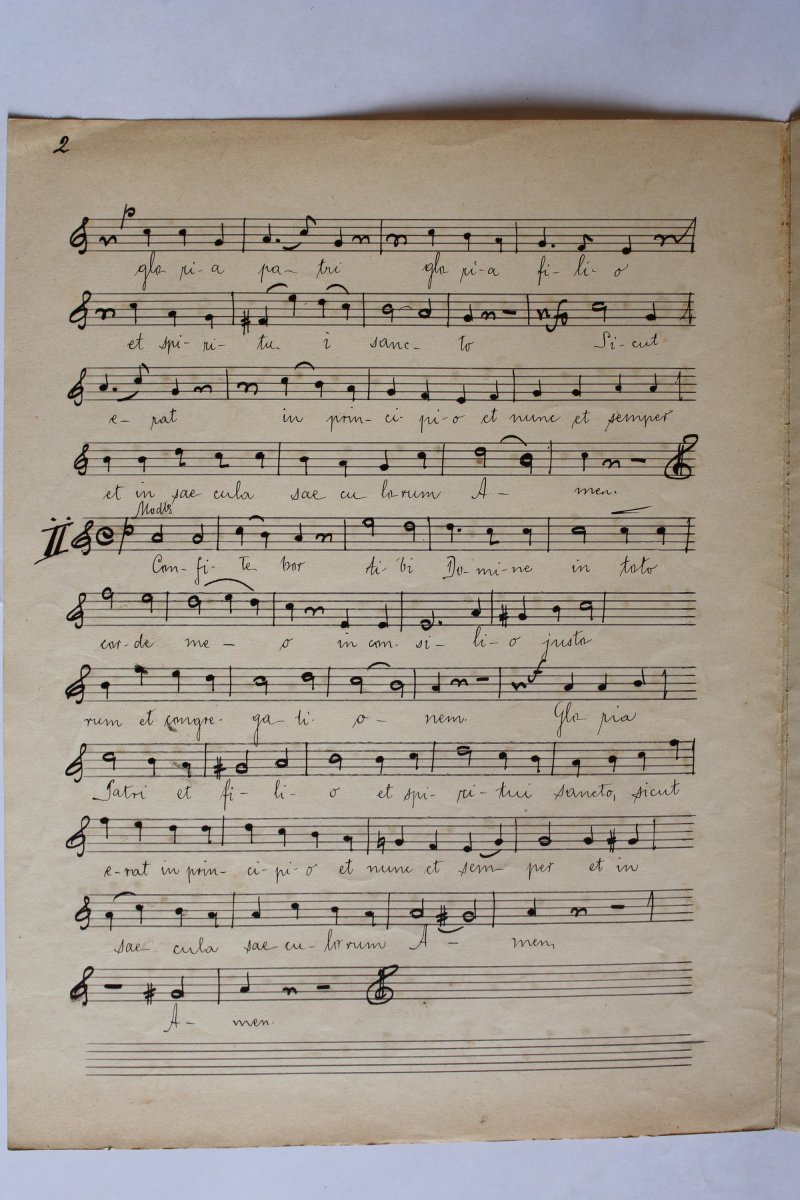 2
p
glo ri-a pa- tri glo ri-a fi-li-o
mfo
et spi-ri-tu i sanc-to Si-cut
e-rat in prin-ci-pi-o et nunc et semper
et in sae cula sae cu lorum A- men.
Modto
II C p
Con-fi-te bor ti-bi Do-mi-ne in toto
cor-de me- o in con-si-li-o justo
mf
rum et congre-ga-ti-o- nem. Glo ria
Patri et fi-li-o et spi-ri-tui sancto, sicut
e-rat in prin-ci-pi-o et nunc et sem- per et in
sae cula sae cu-lorum A- men,
A- men.